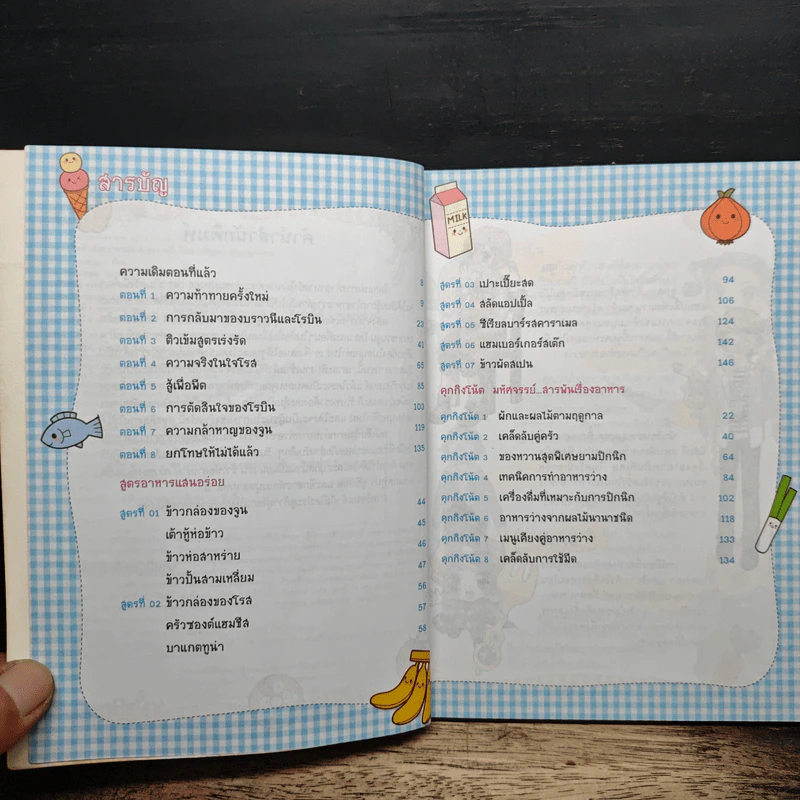 สารบัญ
ความเดิมตอนที่แล้ว 8
ตอนที่ 1 ความท้าทายครั้งใหม่ 9
ตอนที่ 2 การกลับมาของบราวนีและโรบิน 23
ตอนที่ 3 ติวเข้มสูตรเร่งรัด 41
ตอนที่ 4 ความจริงในใจโรส 65
ตอนที่ 5 สู้เพื่อพีต 85
ตอนที่ 6 การตัดสินใจของโรบิน 103
ตอนที่ 7 ความกล้าหาญของจูน 119
ตอนที่ 8 ยกโทษให้ไม่ได้แล้ว 135
สูตรอาหารแสนอร่อย
สูตรที่ 01 ข้าวกล่องของจูน 44
เต้าหู้ห่อข้าว 45
ข้าวห่อสาหร่าย 46
ข้าวปั้นสามเหลี่ยม 47
สูตรที่ 02 ข้าวกล่องของโรส 56
ครัวซองต์แฮมชีส 57
บาแกตทูน่า 58
MILK
สูตรที่ 03 เปาะเปี๊ยะสด 94
สูตรที่ 04 สลัดแอปเปิ้ล 106
สูตรที่ 05 ซีเรียลบาร์รสคาราเมล 124
สูตรที่ 06 แฮมเบอร์เกอร์สเต๊ก 142
สูตรที่ 07 ข้าวผัดสเปน 146
คุกกิงโน้ต มหัศจรรย์...สารพันเรื่องอาหาร
คุกกิงโน้ต 1 ผักและผลไม้ตามฤดูกาล 22
คุกกิงโน้ต 2 เคล็ดลับคู่ครัว 40
คุกกิงโน้ต 3 ของหวานสุดพิเศษยามปิกนิก 64
คุกกิงโน้ต 4 เทคนิคการทำอาหารว่าง 84
คุกกิงโน้ต 5 เครื่องดื่มที่เหมาะกับการปิกนิก 102
คุกกิงโน้ต 6 อาหารว่างจากผลไม้นานาชนิด 118
คุกกิงโน้ต 7 เมนูเคียงคู่อาหารว่าง 133
คุกกิงโน้ต 8 เคล็ดลับการใช้มีด 134